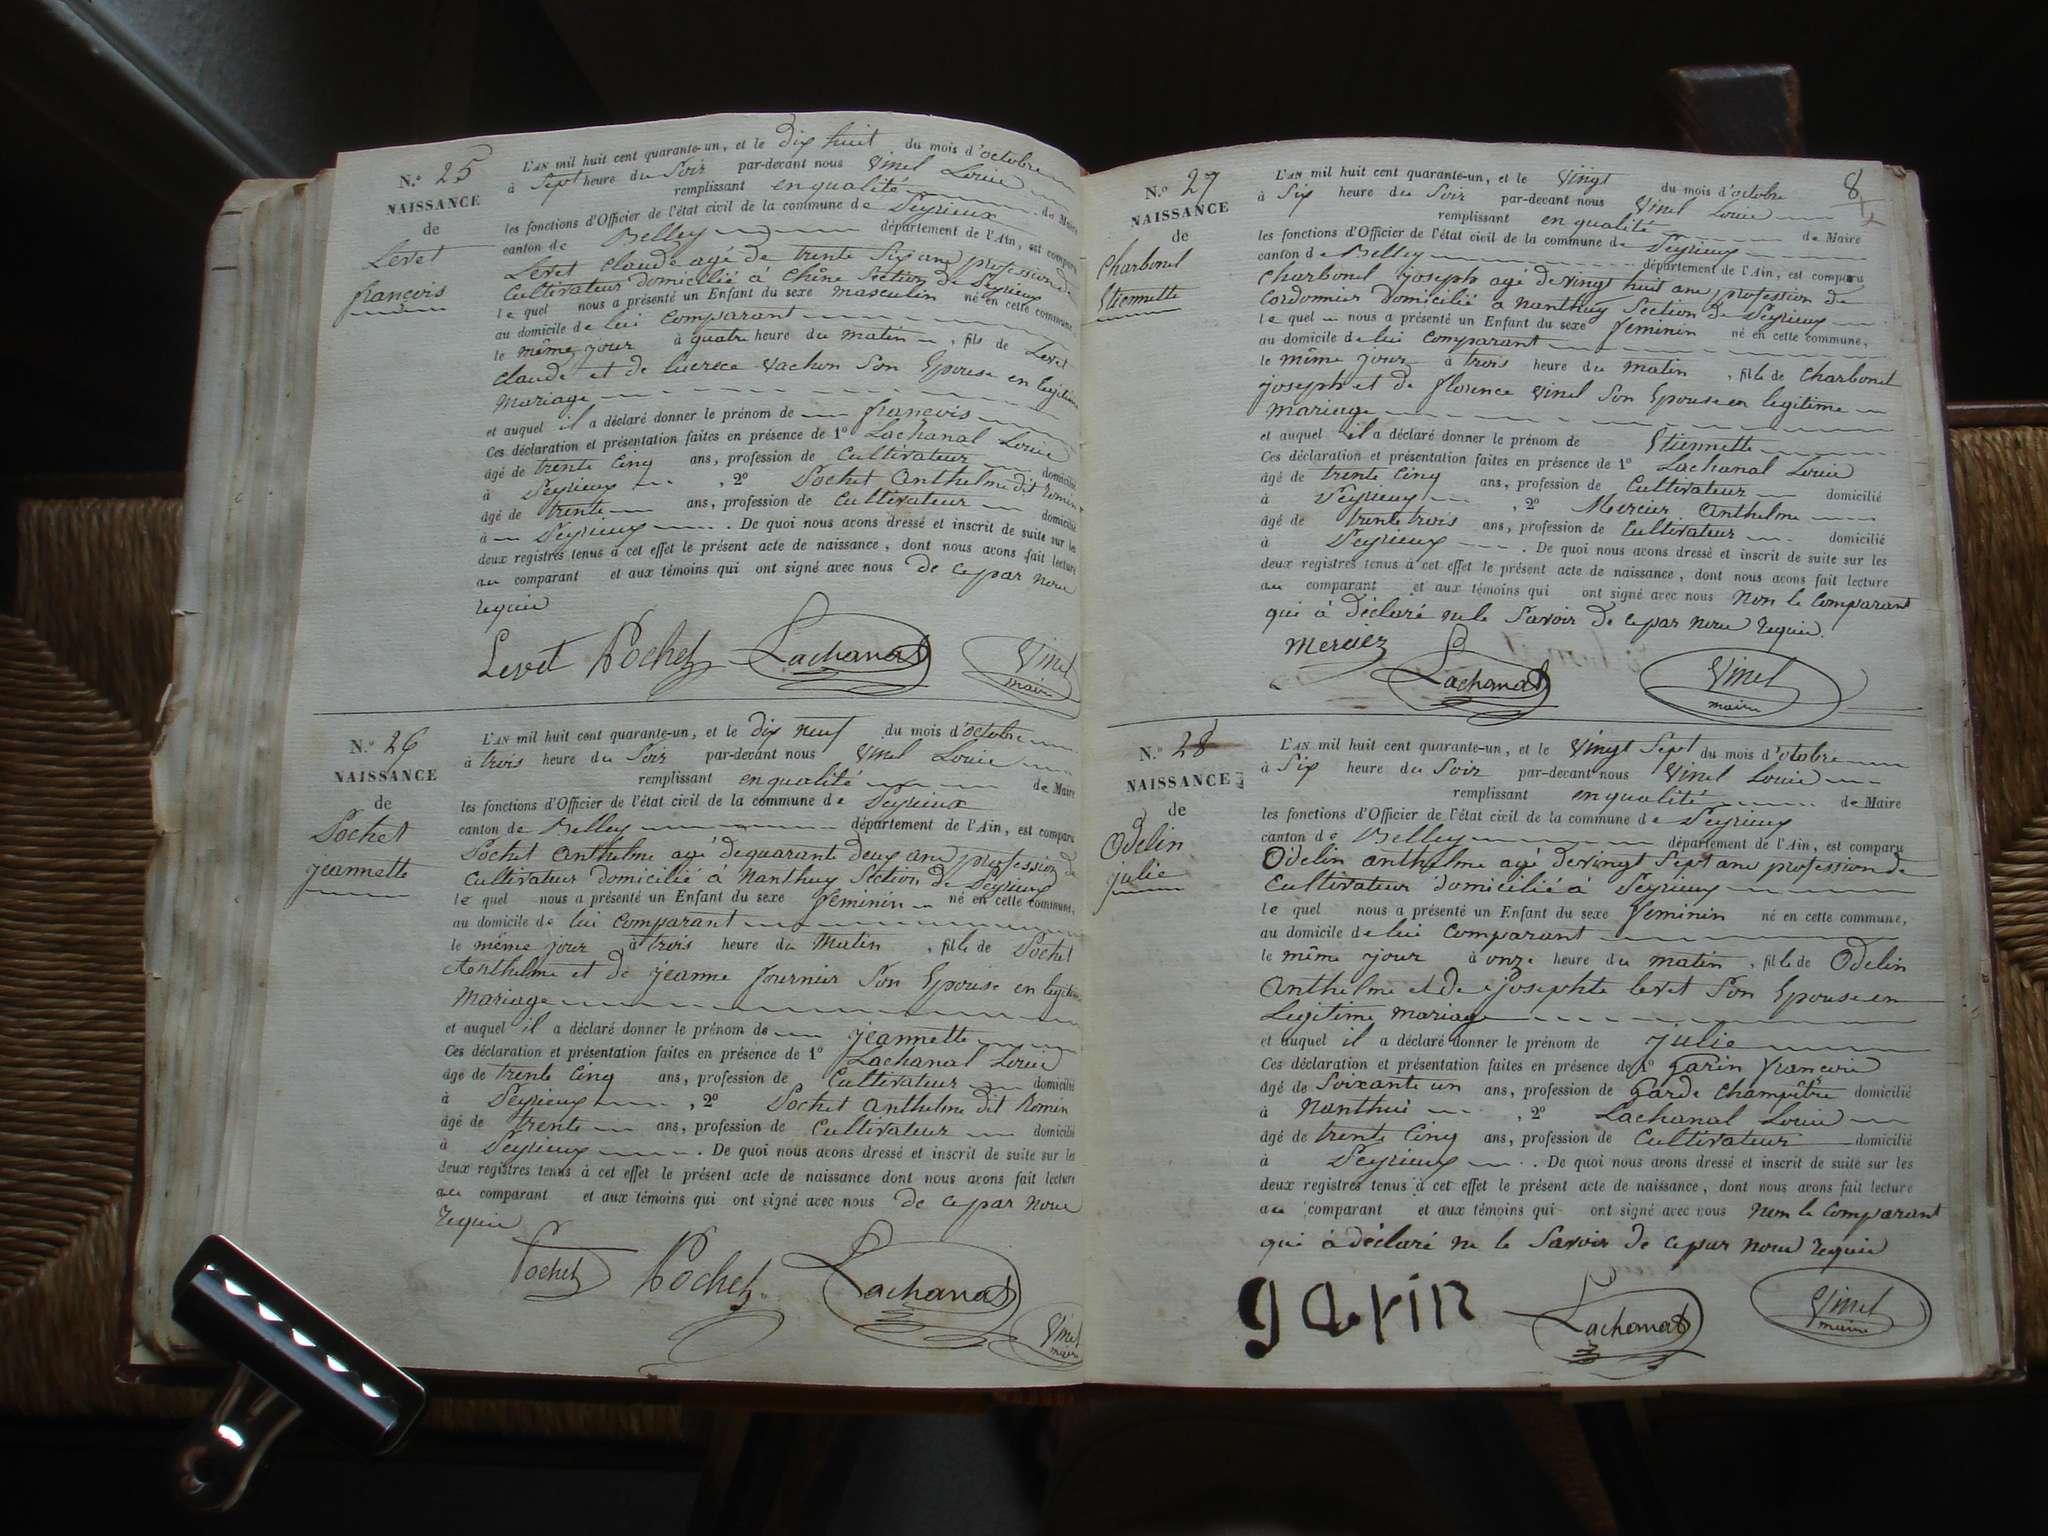 N.° 25
NAISSANCE
de
Levet
françois
L'AN mil huit cent quarante-un, et le dix huit du mois d'octobre
à Sept heure du Soir par-devant nous Vinel Louis
remplissant en qualité de Maire
les fonctions d'Officier de l'état civil de la commune de Peyrieux
canton de Belley département de l'Ain, est comparu
Levet Claude agé de trente Six ans profession de
Cultivateur domicilié à Chêne Section de Peyrieux
le quel nous a présenté un Enfant du sexe masculin né en cette commune,
au domicile de lui comparant
le même jour à quatre heure du matin, fils de Levet
Claude et de Lucrece Vachon Son Epouse en legitime
Mariage
et auquel il a déclaré donner le prénom de françois
Ces déclaration et présentation faites en présence de 1° Lachanal Louis
âgé de trente Cinq ans, profession de Cultivateur domicilié
à Peyrieux, 2° Pochet Anthelme dit Romin
âgé de trente ans, profession de Cultivateur domicilié
à Peyrieux. De quoi nous avons dressé et inscrit de suite sur les
deux registres tenus à cet effet le présent acte de naissance, dont nous avons fait lecture
au comparant et aux témoins qui ont signé avec nous de ce par nous
requis
Levet Pochet Lachanal Vinel
maire
N.° 26
NAISSANCE
de
Pochet
jeannette
L'AN mil huit cent quarante-un, et le dix neuf du mois d'octobre
à trois heure du Soir par-devant nous Vinel Louis
remplissant en qualité de Maire
les fonctions d'Officier de l'état civil de la commune de Peyrieux
canton de Belley département de l'Ain, est comparu
Pochet Anthelme agé de quarante deux ans profession de
Cultivateur domicilié à Nanthuy Section de Peyrieux
le quel nous a présenté un Enfant du sexe feminin né en cette commune,
au domicile de lui comparant
le même jour à trois heure du Matin, fille de Pochet
Anthelme et de jeanne fournier Son Epouse en legitime
Mariage
et auquel il a déclaré donner le prénom de jeannette
Ces déclaration et présentation faites en présence de 1° Lachanal Louis
âgé de trente Cinq ans, profession de Cultivateur domicilié
à Peyrieux, 2° Pochet Anthelme dit Romin
âgé de trente ans, profession de Cultivateur domicilié
à Peyrieux. De quoi nous avons dressé et inscrit de suite sur les
deux registres tenus à cet effet le présent acte de naissance dont nous avons fait lecture
au comparant et aux témoins qui ont signé avec nous de ce par nous
requis
Pochet Pochet Lachanal Vinel
maire
8
N.° 27
NAISSANCE
de
Charbonel
Etiennette
L'AN mil huit cent quarante-un, et le vingt du mois d'octobre
à Six heure du Soir par-devant nous Vinel Louis
remplissant en qualité de Maire
les fonctions d'Officier de l'état civil de la commune de Peyrieux
canton de Belley département de l'Ain, est comparu
Charbonel joseph agé de vingt huit ans profession de
Cordonnier domicilié a Nanthuy Section de Peyrieux
le quel nous a présenté un Enfant du sexe feminin né en cette commune,
au domicile de lui comparant
le même jour à trois heure du matin, fille de Charbonel
joseph et de florence Vinel Son Epouse en legitime
mariage
et auquel il a déclaré donner le prénom de Etiennette
Ces déclaration et présentation faites en présence de 1° Lachanal Louis
âgé de trente Cinq ans, profession de Cultivateur domicilié
à Peyrieux, 2° Mercier Anthelme
âgé de trente trois ans, profession de Cultivateur domicilié
à Peyrieux. De quoi nous avons dressé et inscrit de suite sur les
deux registres tenus à cet effet le présent acte de naissance, dont nous avons fait lecture
au comparant et aux témoins qui ont signé avec nous Non le comparant
qui à déclaré ne le Savoir de ce par nous requis.
Lachanal Vinel
maire
N.° 28
NAISSANCE
de
Odelin
julie
L'AN mil huit cent quarante-un, et le Vingt Sept du mois d'octobre
à Six heure du Soir par-devant nous Vinel Louis
remplissant en qualité de Maire
les fonctions d'Officier de l'état civil de la commune de Peyrieux
canton de Belley département de l'Ain, est comparu
Odelin anthelme agé de vingt Sept ans profession de
Cultivateur domicilié à Peyrieux
le quel nous a présenté un Enfant du sexe feminin né en cette commune,
au domicile de lui comparant
le même jour à onze heure du matin, fille de Odelin
Anthelme et de josephte levet Son Epouse en
Legitime mariage
et auquel il a déclaré donner le prénom de julie
Ces déclaration et présentation faites en présence de 1° Garin francois
âgé de Soixante un ans, profession de Garde Champêtre domicilié
à Nanthui, 2° Lachanal Louis
âgé de trente Cinq ans, profession de Cultivateur domicilié
à Peyrieux. De quoi nous avons dressé et inscrit de suite sur les
deux registres tenus à cet effet le présent acte de naissance, dont nous avons fait lecture
au comparant et aux témoins qui ont signé avec nous non le comparant
qui à déclaré ne le Savoir de ce par nous requis
garin Lachanal Vinel
maire